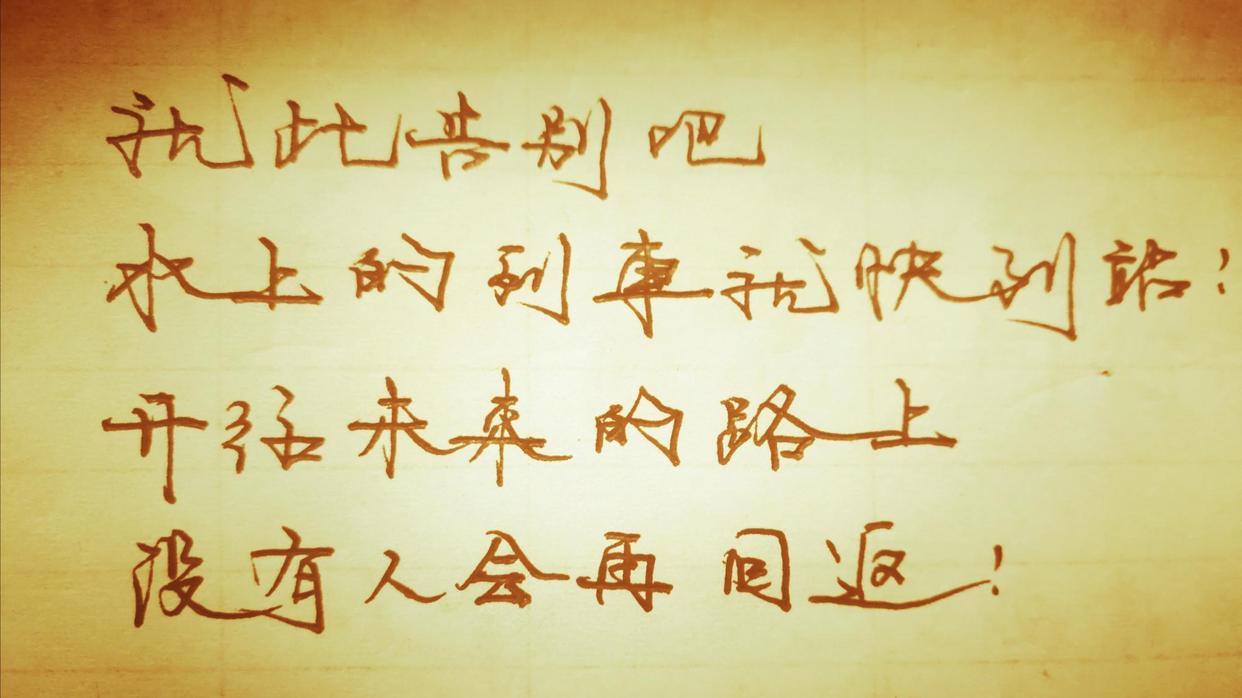 就此告别吧
水上的列車就快到站!
开往未来的路上
没有人会再回返!